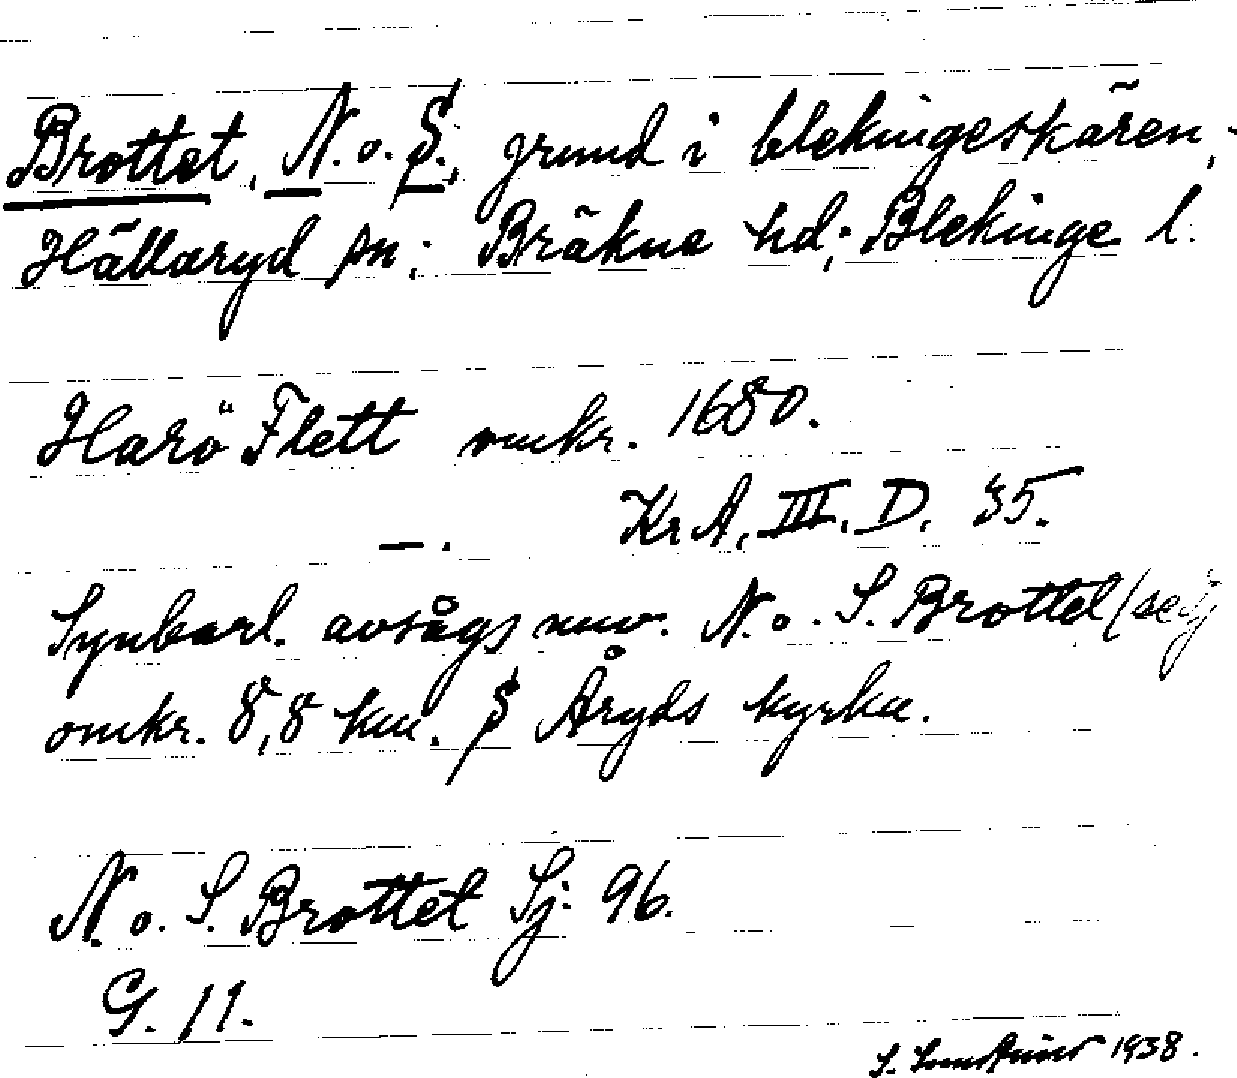 Brottet, N. o. S., grund i blekingeskären,
Hällaryd sn; Bräkne hd; Blekinge l.
Harö Flett omkr. 1680.
—. Kr A, III. D. 35.
Synbarl. avsågs nuv. N. o. S. Brottet (se
omkr. 8,8 km. S Åryds kyrka.
N. o. S. Brottet Sj. 96.
G. 11.
S. 1938.